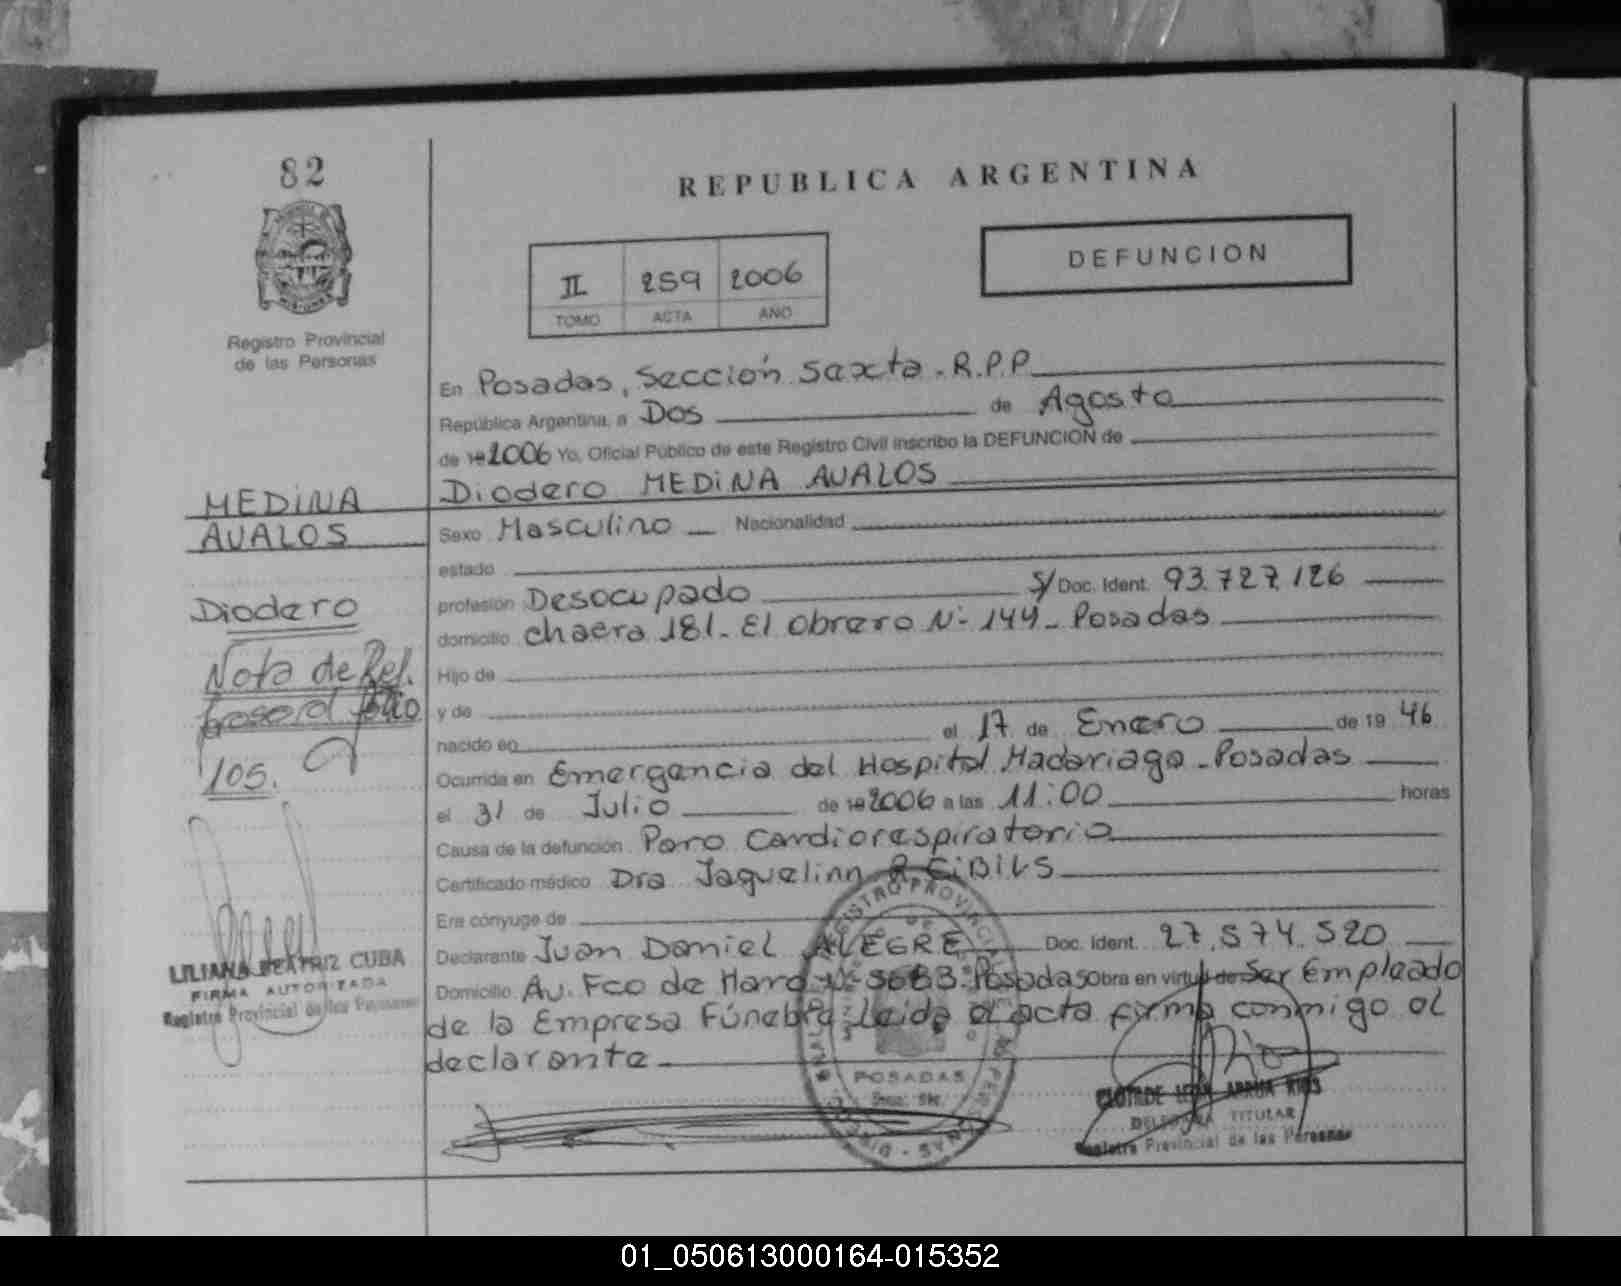 82
REPUBLICA ARGENTINA
DEFUNCION
II 259 2006
TOMO ACTA AÑO
Registro Provincial
de las Personas
En Posadas, Sección Sexta - R.P.P.
República Argentina, a Dos de Agosto
de 19 2006 Yo, Oficial Público de este Registro Civil inscribo la DEFUNCION de
Diodero MEDINA AVALOS
MEDINA
AVALOS
Diodero
Nota de Ref.
105.
Sexo Masculino Nacionalidad
estado
profesión Desocupado S/ Doc. Ident. 93.727.126
domicilio chacra 181- El Obrero N- 144- Posadas
Hijo de
y de
nacido en el 17 de Enero de 19 46
Ocurrida en Emergencia del Hospital Madariaga - Posadas
el 31 de Julio de 19 2006 a las 11:00 horas
Causa de la defunción Paro Cardiorespiratorio
Certificado médico Dra Jaquelinn R. CIBILS
Era cónyuge de
Declarante Juan Daniel ALEGRE Doc. Ident. 27.574.520
Domicilio Av. Fco de Haro N- Posadas obra en virtud de Ser Empleado
de la Empresa Fúnebre Leída el acta firma conmigo el
declarante
LILIANA BEATRIZ CUBA
FIRMA AUTORIZADA
Registro Provincial de las Personas
POSADAS
CLOTILDE ARRUA RIOS
DELEGADA TITULAR
Registro Provincial de las Personas
01_050613000164-015352